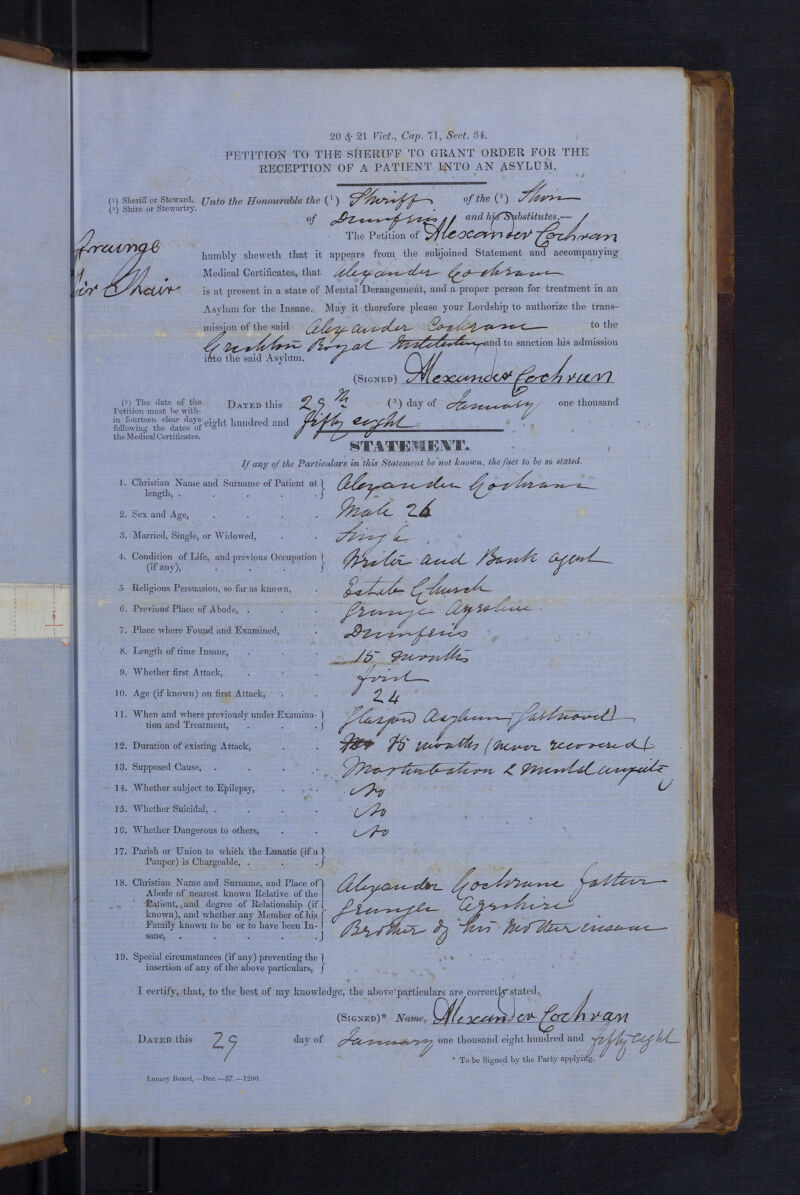 20 & 21 Vict., Cap. 71, Sect. 34.
PETITION TO THE SHERIFF TO GRANT ORDER FOR THE
RECEPTION OF A PATIENT INTO AN ASYLUM.
(1) Sheriff or Steward.
(2) Shire or Stewartry.
Unto the Honourable the (1) Sheriff of the (2) Shire
of Dumfries and his Substitutes,—
The Petition of Alexander Cochran
Grainge
humbly sheweth that it appears from the subjoined Statement and accompanying
Medical Certificates, that Alexander Cochrane
is at present in a state of Mental Derangement, and a proper person for treatment in an
Asylum for the Insane. May it therefore please your Lordship to authorize the trans-
mission of the said Alexander Cochrane to the
Crichton Royal Institution and to sanction his admission
into the said Asylum.
(SIGNED) Alexander Cochran
(3) The date of the
Petition must be with-
in fourteen clear days
following the dates of
the Medical Certificates.
DATED this 29th (3) day of January one thousand
eight hundred and fifty eight
STATEMENT.
If any of the Particulars in this Statement be not known, the fact to be so stated.
1. Christian Name and Surname of Patient at
length, . Alexander Cochrane
2. Sex and Age, Male 26
3. Married, Single, or Widowed, Single
4. Condition of Life, and previous Occupation
(if any), Writer and Bank agent
5 Religious Persuasion, so far as known, Estab Church
6. Previous Place of Abode, Grange Ayrshire
7. Place where Found and Examined, Dumfries
8. Length of time Insane, 15 months
9. Whether first Attack, first
10. Age (if known) on first Attack, 24
11. When and where previously under Examina-
tion and Treatment, Glasgow Asylum (Gartnavel)
12. Duration of existing Attack, 15 months (never recovered)
13. Supposed Cause, Masturbation & mental anxiety
14. Whether subject to Epilepsy, No
15. Whether Suicidal, No
16. Whether Dangerous to others, No
17. Parish or Union to which the Lunatic (if a
Pauper) is Chargeable,
18. Christian Name and Surname, and Place of
Abode of nearest known Relative of the
Patient, and degree of Relationship (if
known), and whether any Member of his
Family known to be or to have been In-
sane,
Alexander Cochrane father
Grange Ayrshire
Brother of his Mother insane
19. Special circumstances (if any) preventing the
insertion of any of the above particulars,
I certify, that, to the best of my knowledge, the above particulars are correctly stated,
(SIGNED)* Name, Alexander Cochran
DATED this 29 day of January one thousand eight hundred and fifty eight
* To be Signed by the Party applying.
Lunacy Board,—Dec.—57.—1200.